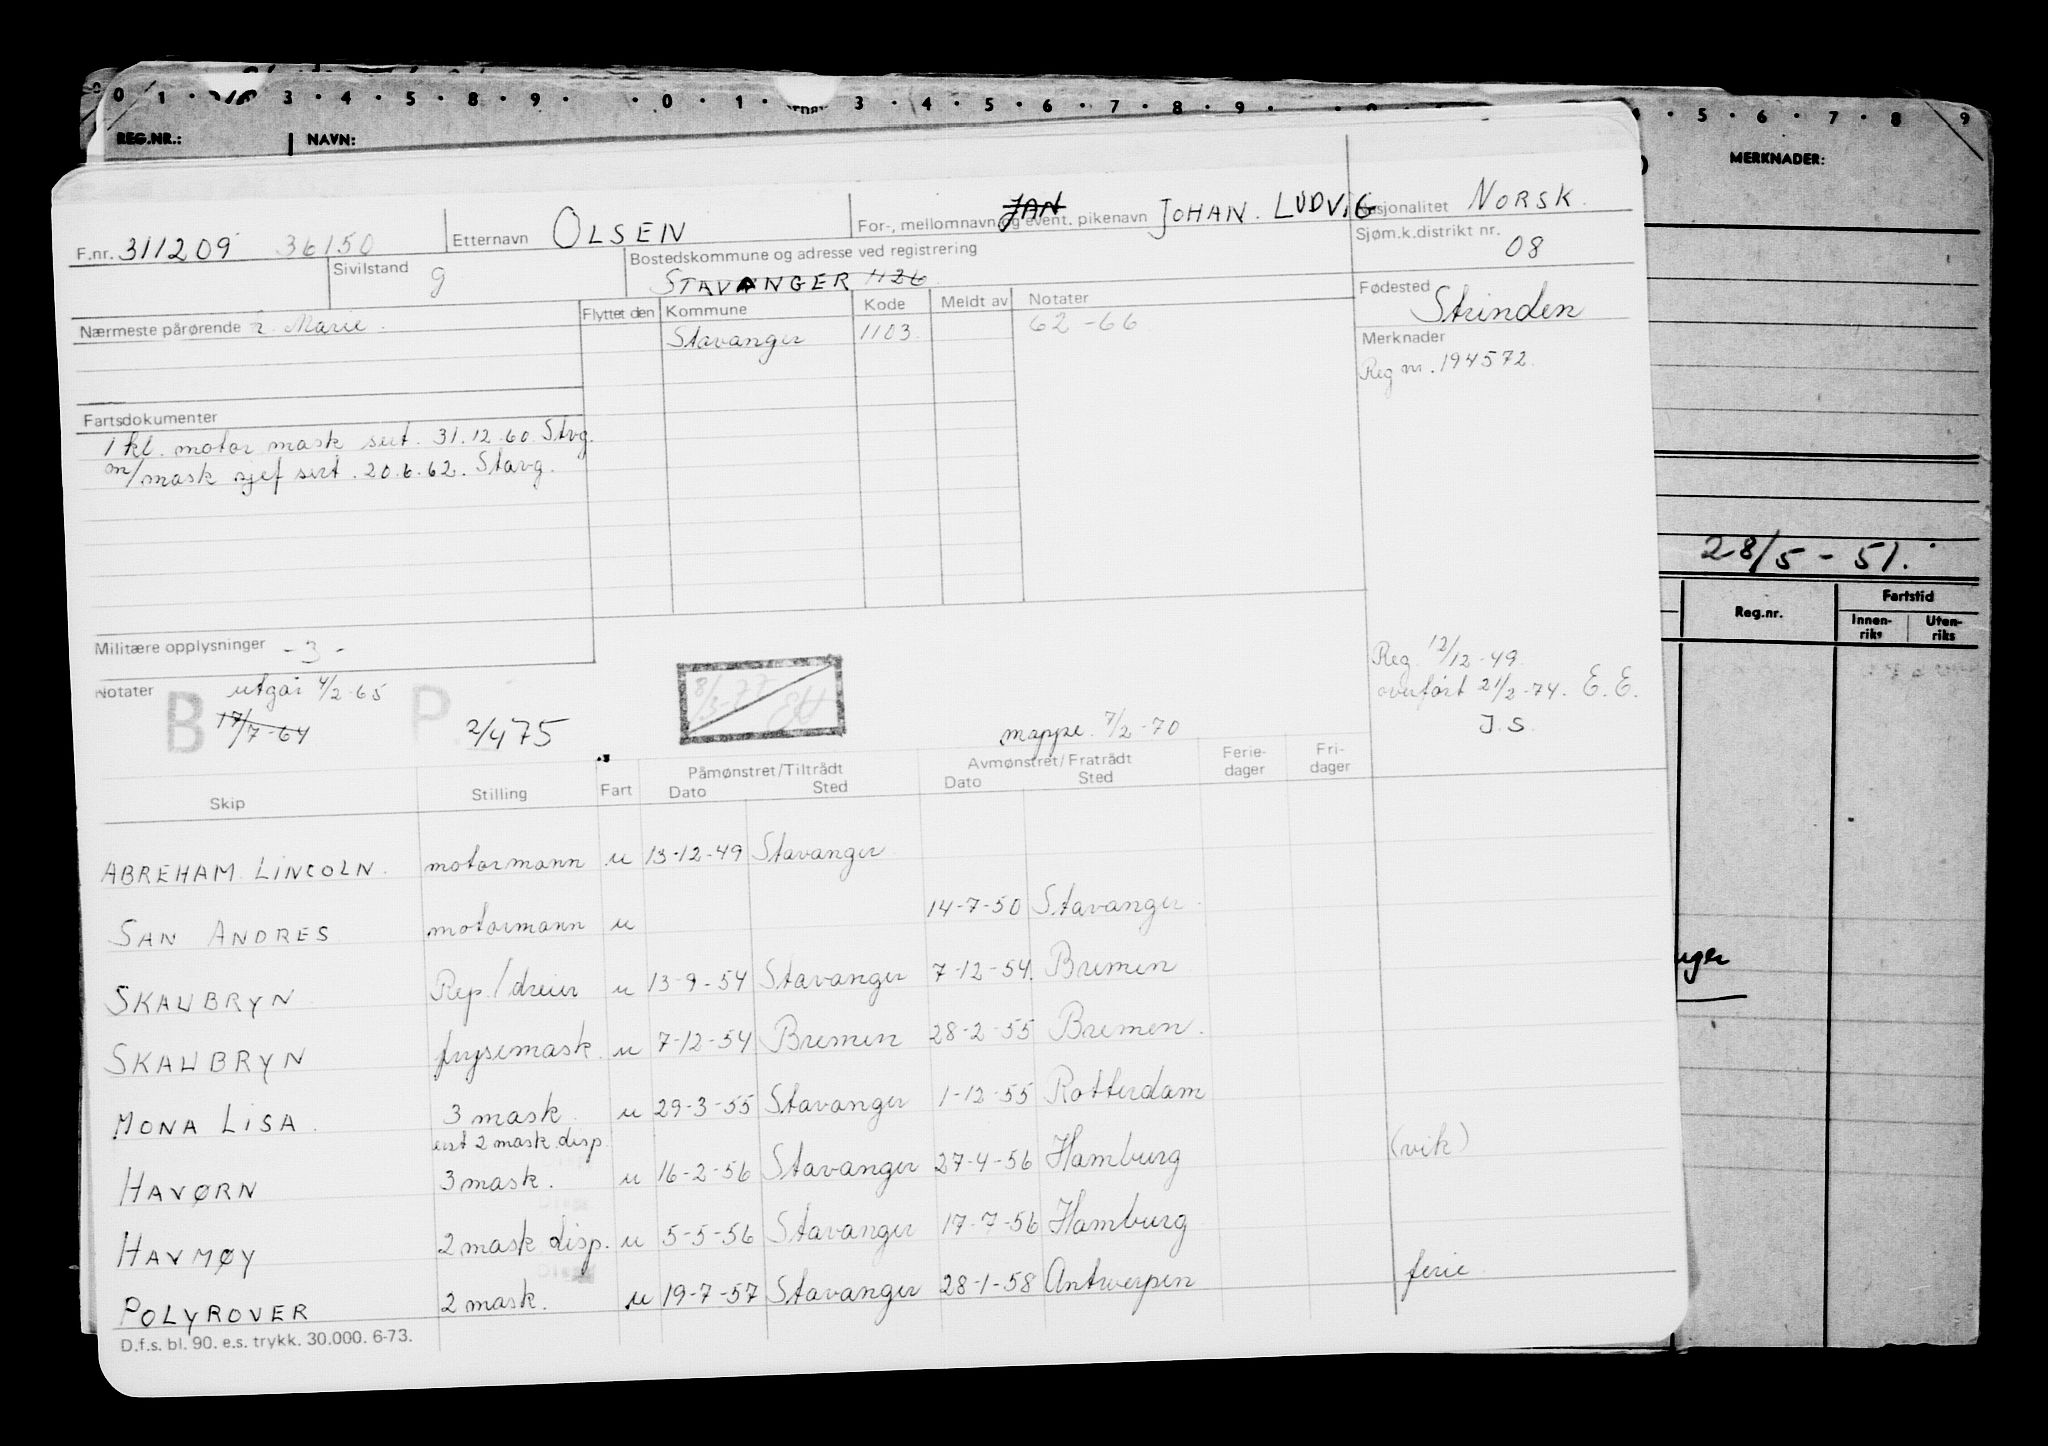 0 1 · 3 · 4 · 5 · 8 · 9 · · 0 · 1 · 3 · 4 · 5 · 6 · 7 · 8 · 9 · 5 · 6 · 7 · 8 9
REG.NR.: NAVN: MERKNADER:
F.nr. 311209 36150 Etternavn OLSEN For-, mellomnavn og event. pikenavn JAN JOHAN. LUDVIG Nasjonalitet NORSK.
Sjøm.k.distrikt nr. 08
Sivilstand g Bostedskommune og adresse ved registrering
STAVANGER 1126
Fødested Strinden
Nærmeste pårørende Marie. Flyttet den Kommune Kode Meldt av Notater
Stavanger 1103. 62-66.
Merknader
Reg nr. 194572.
Fartsdokumenter
1 kl. motor mask sert. 31.12.60. Stvg.
m/mask sjef sert. 20.6.62. Stavg.
28/5-51.
Reg.nr. Fartstid
Innen-riks Uten-riks
Militære opplysninger -3-
Notater B utgår 4/2-65 P. 8/3-77
17/7-64 2/475 mappe. 7/2-70
Reg. 12/12-49.
overført 21/2-74. E.E.
J.S.
Skip Stilling Fart Påmønstret/Tiltrådt Dato Sted Avmønstret/Fratrådt Dato Sted Ferie-dager Fri-dager
ABREHAM. LINCOLN. motormann u 13-12-49 Stavanger
SAN ANDRES motormann u 14-7-50 Stavanger.
SKAUBRYN Rep./dreier u 13-9-54 Stavanger 7-12-54. Bremen
SKAUBRYN frysemask. u 7-12-54 Bremen 28-2-55 Bremen.
MONA LISA. 3 mask. u 29-3-55 Stavanger 1-12-55 Rotterdam
2 mask. disp.
HAVØRN 3 mask. u 16-2-56 Stavanger 27-4-56 Hamburg (vik)
HAVMØY 2 mask disp. u 5-5-56 Stavanger 17-7-56 Hamburg
POLYROVER 2 mask. u 19-7-57 Stavanger 28-1-58 Antwerpen ferie.
D.f.s. bl. 90. e.s. trykk. 30.000. 6-73.